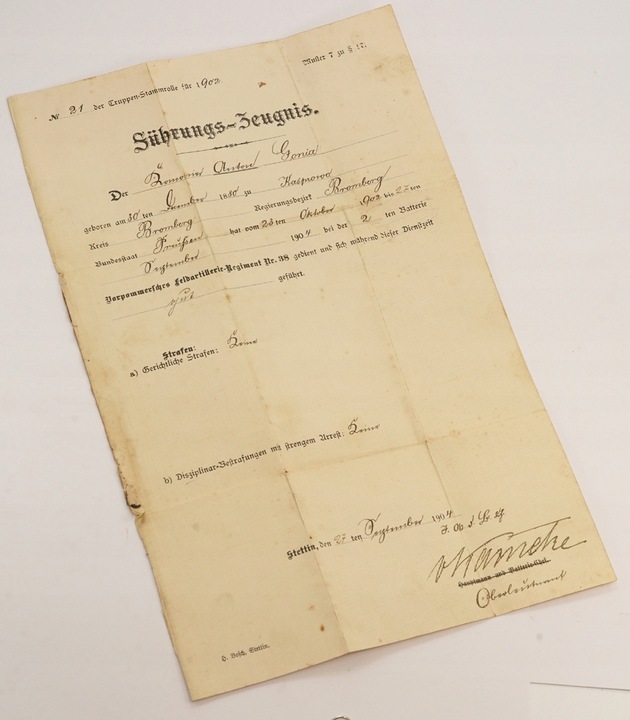 Muster 7 zu § 17.
№ 21 der Truppen-Stammrolle für 1902
Führungs-Zeugnis.
Der Kanonier Anton Gonia
geboren am 30 ten Dezember 1880 zu Kasprowo
Kreis Bromberg Regierungsbezirk Bromberg
Bundesstaat Preußen hat vom 23 ten Oktober 1902 bis 27 ten
September 1904 bei der 2 ten Batterie
Vorpommersches Feldartillerie-Regiment Nr. 38 gedient und sich während dieser Dienstzeit
gut geführt.
Strafen:
a) Gerichtliche Strafen: Keine
b) Disziplinar-Bestrafungen mit strengem Arrest: Keine
Stettin, den 27 ten September 1904
Hauptmann und Batterie-Chef.
Oberleutnant
H. Besch, Stettin.